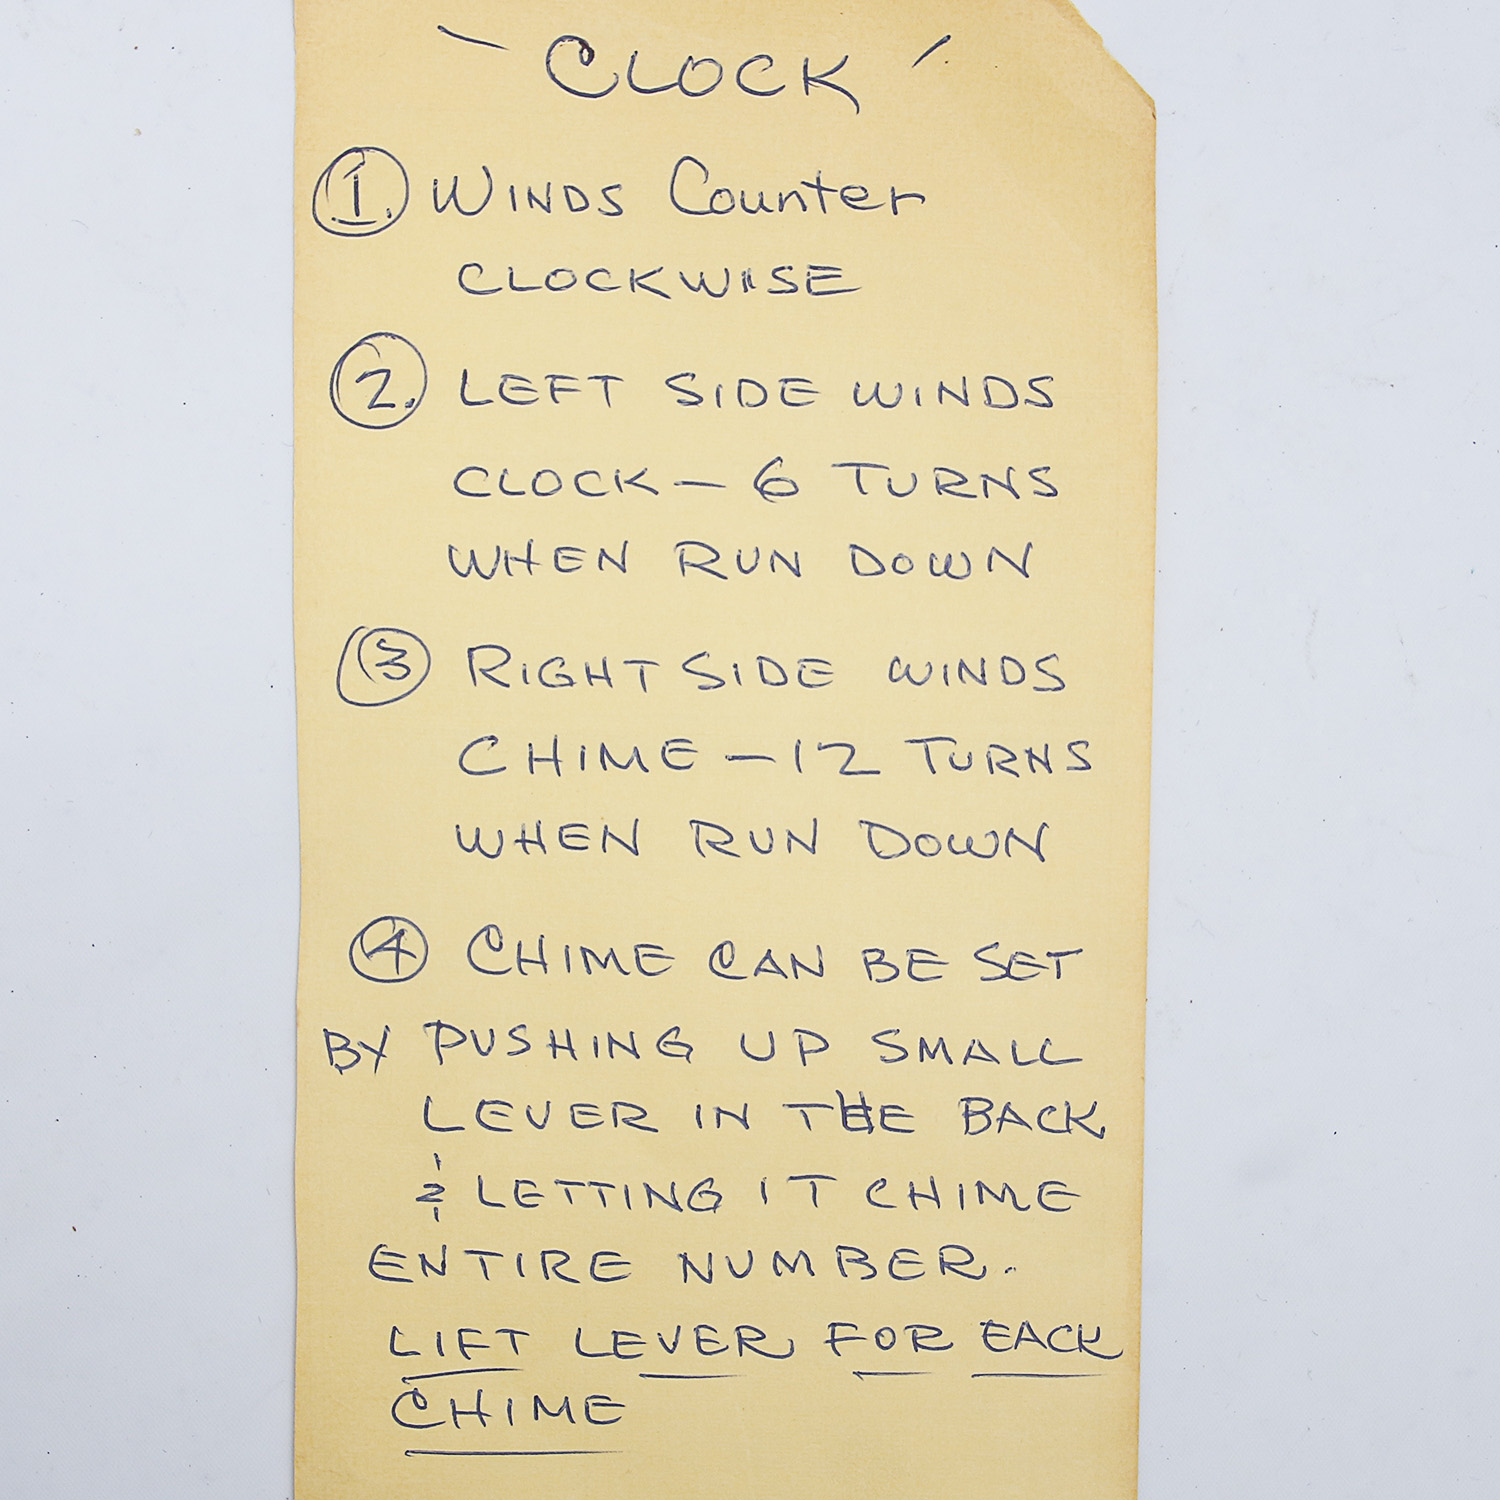 `CLOCK´
1. WINDS Counter
CLOCKWISE
2. LEFT SIDE WINDS
CLOCK — 6 TURNS
WHEN RUN DOWN
3 RIGHT SIDE WINDS
CHIME — 12 TURNS
WHEN RUN DOWN
4 CHIME CAN BE SET
BY PUSHING UP SMALL
LEVER IN THE BACK
& LETTING IT CHIME
ENTIRE NUMBER.
LIFT LEVER FOR EACK
CHIME